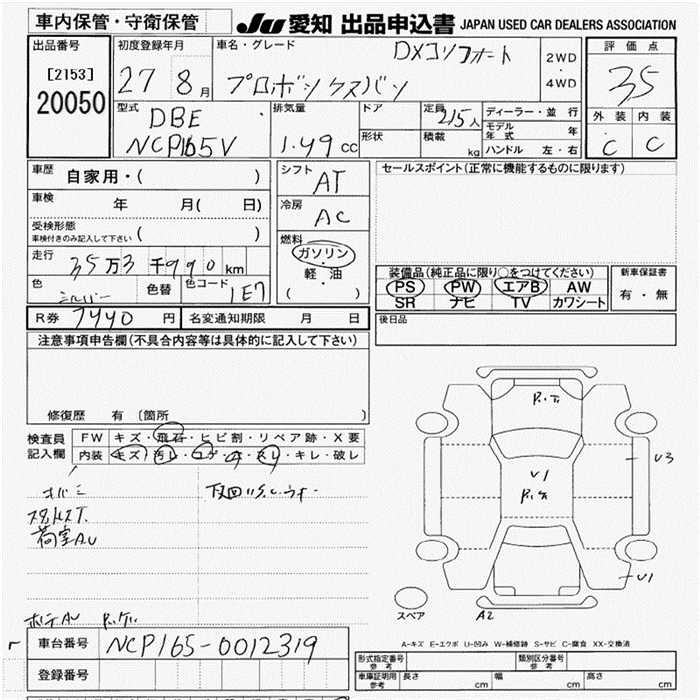 車内保管・守衛保管
JU 愛知 出品申込書 JAPAN USED CAR DEALERS ASSOCIATION
出品番号
[2153]
20050
初度登録年月
27 8月
車名・グレード
DXコンフォート
プロボックスバン
2WD
・
4WD
評価点
35
外装 内装
C C
型式
DBE
NCP165V
排気量
1.49 cc
ドア
形状
定員
2/5人
積載
kg
ディーラー・並行
モデル年式 年
ハンドル 左・右
車歴 自家用・( )
車検 年 月( 日)
受検形態
車検付きのみ記入して下さい ( )
走行 35万3千990km
色 シルバー 色替 色コード 1E7
シフト
AT
冷房
AC
燃料
ガソリン
・
軽・油
( )
セールスポイント(正常に機能するものに限ります)
装備品(純正品に限り○をつけてください)
PS PW エアB AW
SR ナビ TV カワシート
新車保証書
有・無
R券 7440円 名変通知期限 月 日
後日品
注意事項申告欄(不具合内容等は具体的に記入して下さい)
修復歴 有 (箇所 )
検査員
記入欄
FW キズ・飛石・ヒビ割・リペア跡・X要
内装 キズ・汚レ・コゲ・穴・スレ・キレ・破レ
下回りサビ
荷室AU
V1
V3
V1
A2
スペア
A-キズ E-エクボ U-凹み W-補修跡 S-サビ C-腐食 XX-交換済
車台番号 NCP165-0012319
登録番号
形式指定番号
参考
類別区分番号
参考
車庫証明用
参考
長さ cm 幅 cm 高さ cm